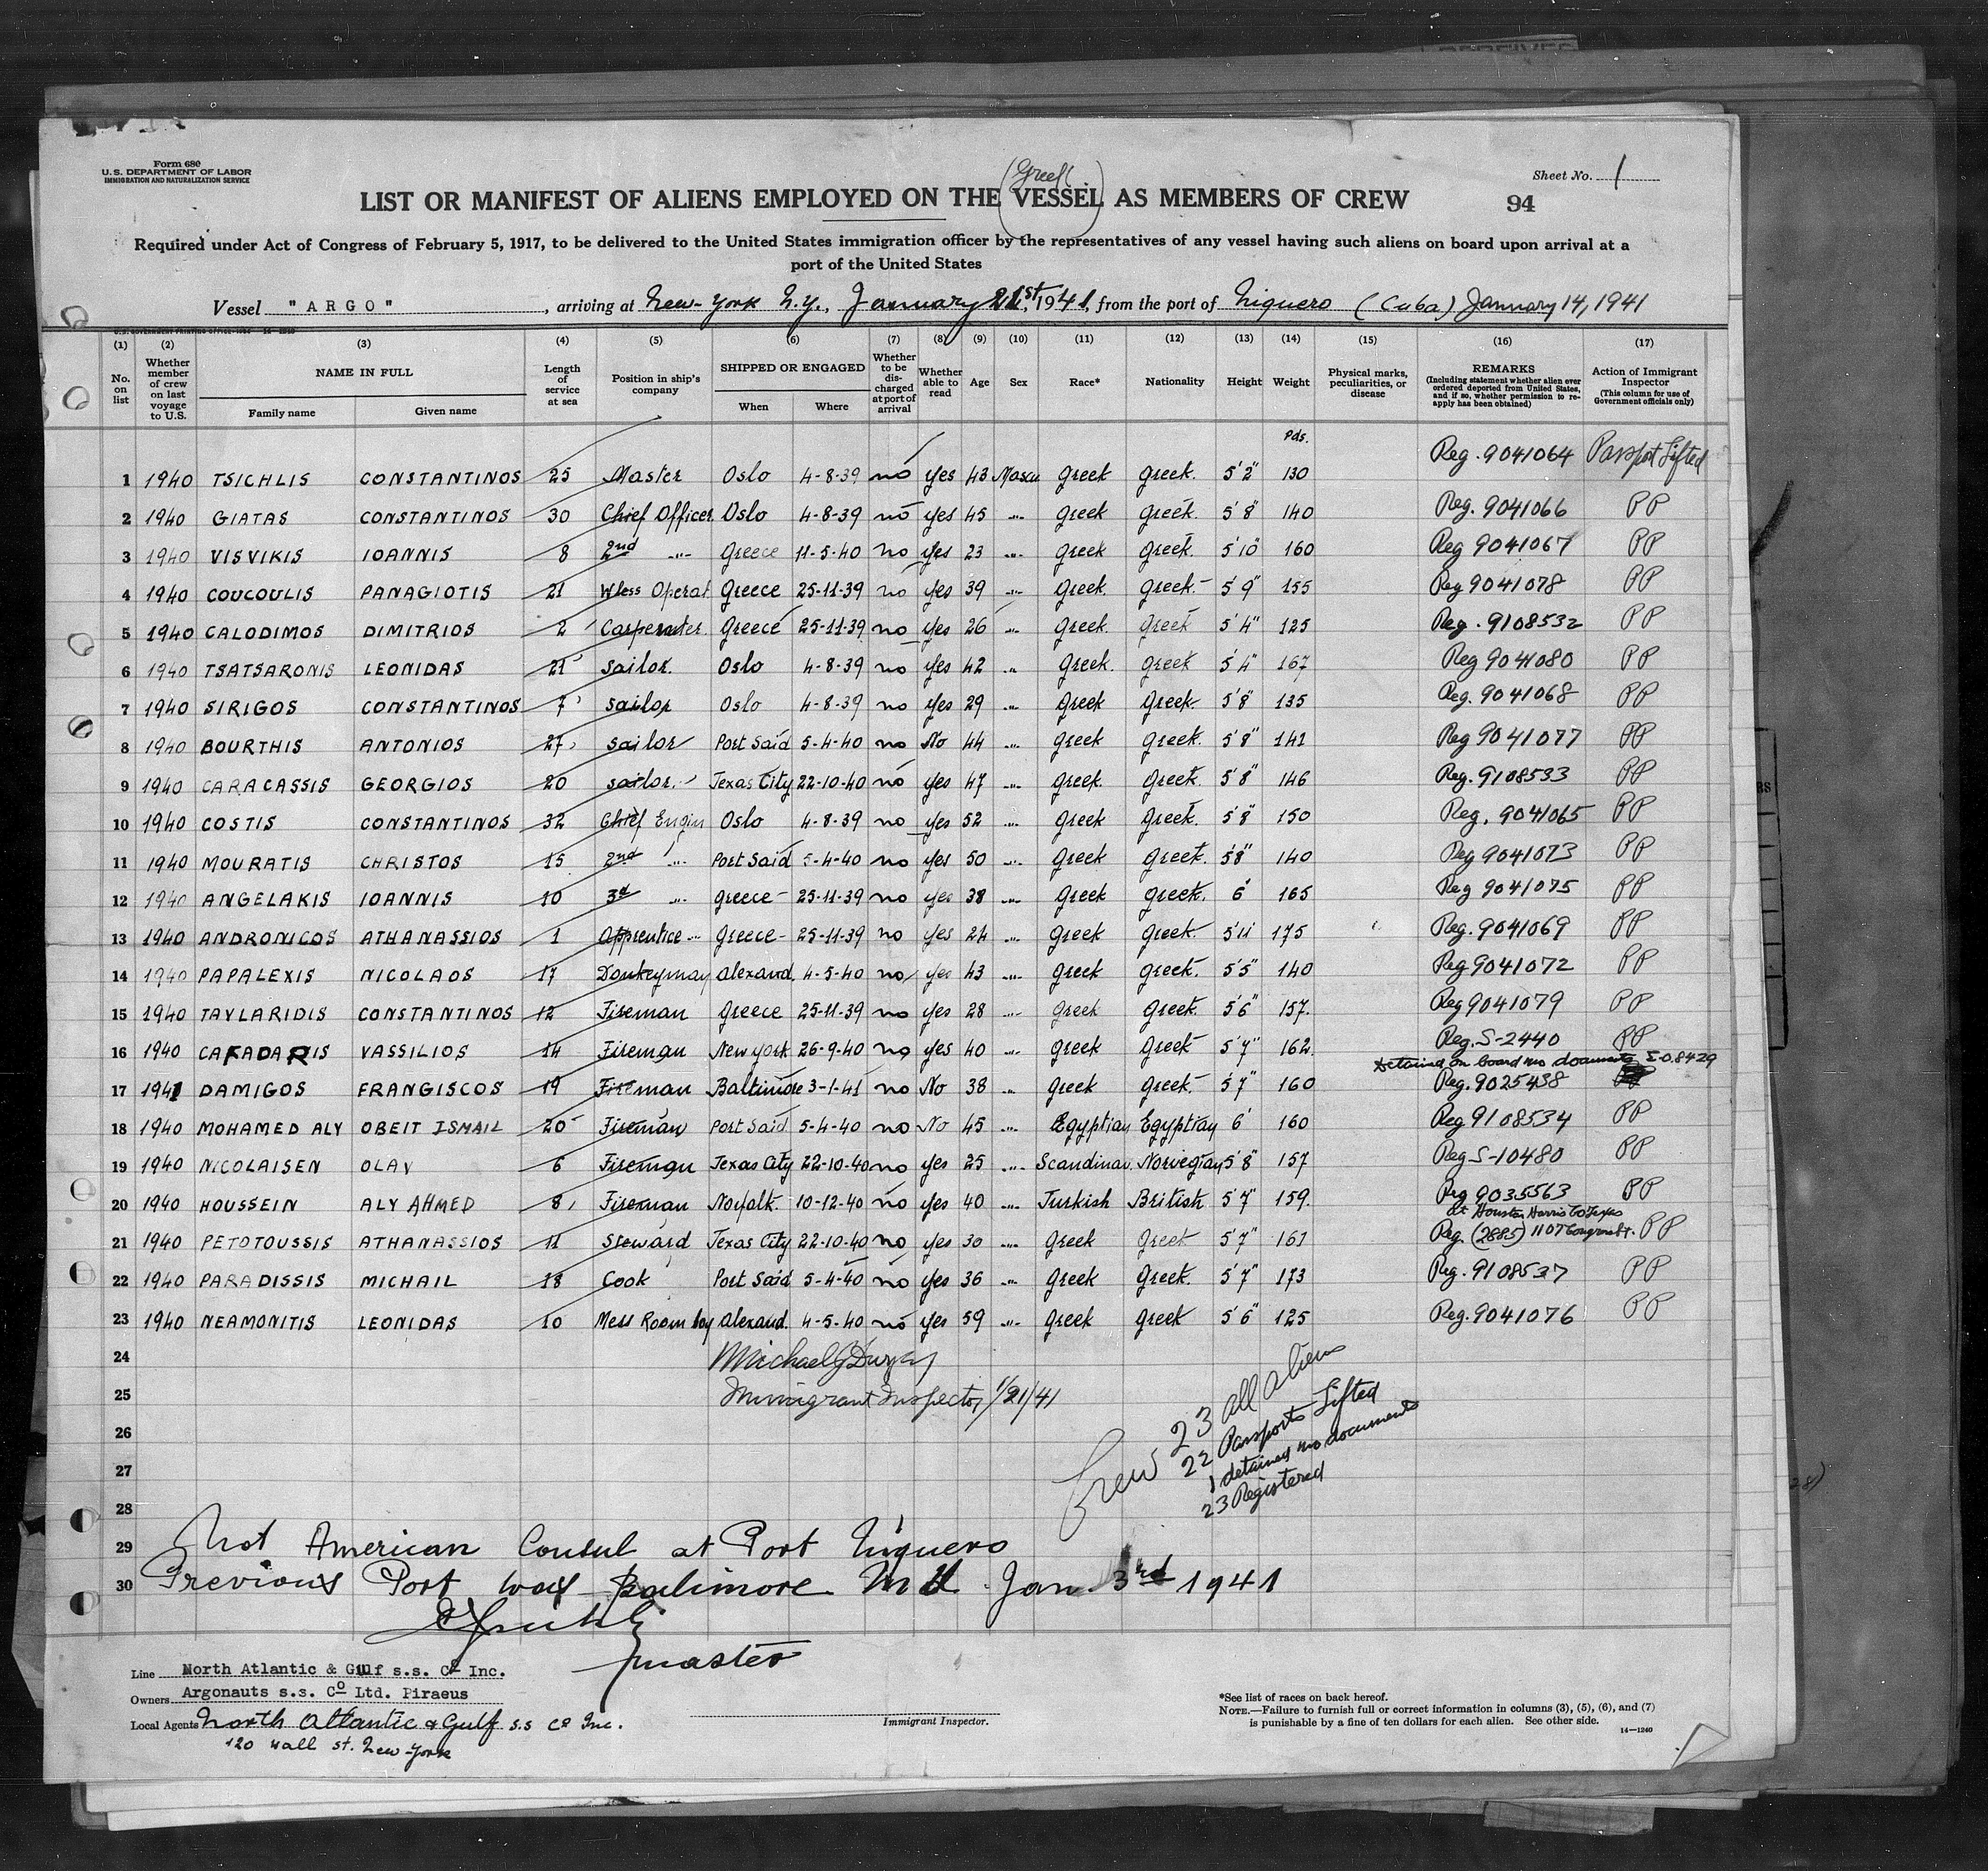 Form 680
U. S. DEPARTMENT OF LABOR
IMMIGRATION AND NATURALIZATION SERVICE
Sheet No. 1
(Greek)
LIST OR MANIFEST OF ALIENS EMPLOYED ON THE VESSEL AS MEMBERS OF CREW
94
Required under Act of Congress of February 5, 1917, to be delivered to the United States immigration officer by the representatives of any vessel having such aliens on board upon arrival at a
port of the United States
Vessel "ARGO", arriving at New-York N.Y., January 21st, 1941, from the port of Niquero (Cuba) January 14, 1941
(1) (2) (3) (4) (5) (6) (7) (8) (9) (10) (11) (12) (13) (14) (15) (16) (17)
No. on list
Whether member of crew on last voyage to U.S.
NAME IN FULL
Family name Given name
Length of service at sea
Position in ship's company
SHIPPED OR ENGAGED
When Where
Whether to be discharged at port of arrival
Whether able to read
Age Sex Race* Nationality Height Weight
Physical marks, peculiarities, or disease
REMARKS
(Including statement whether alien ever ordered deported from United States, and if so, whether permission to reapply has been obtained)
Action of Immigrant Inspector
(This column for use of Government officials only)
Pds.
1 1940 TSICHLIS CONSTANTINOS 25 Master Oslo 4-8-39 no yes 43 Mascu Greek Greek. 5'2" 130 Reg. 9041064 Passport Lifted
2 1940 GIATAS CONSTANTINOS 30 Chief Officer Oslo 4-8-39 no yes 45 -"- Greek Greek. 5'8" 140 Reg. 9041066 PP
3 1940 VISVIKIS IOANNIS 8 2nd -"- Greece 11-5-40 no yes 23 -"- Greek Greek. 5'10" 160 Reg 9041067 PP
4 1940 COUCOULIS PANAGIOTIS 21 Wless Operat. Greece 25-11-39 no yes 39 -"- Greek. Greek. 5'9" 155 Reg 9041078 PP
5 1940 CALODIMOS DIMITRIOS 2 Carpenter. Greece 25-11-39 no yes 26 -"- Greek. Greek 5'4" 125 Reg. 9108532 PP
6 1940 TSATSARONIS LEONIDAS 21 sailor. Oslo 4-8-39 no yes 42 " Greek. Greek 5'4" 167 Reg 9041080 PP
7 1940 SIRIGOS CONSTANTINOS 7 sailor Oslo 4-8-39 no yes 29 -"- Greek Greek. 5'8" 135 Reg. 9041068 PP
8 1940 BOURTHIS ANTONIOS 27 sailor Port Said 5-4-40 no No 44 -"- Greek Greek. 5'8" 141 Reg 9041077 PP
9 1940 CARACASSIS GEORGIOS 20 sailor. Texas City 22-10-40 no yes 47 -"- Greek. Greek. 5'8" 146 Reg. 9108533 PP
10 1940 COSTIS CONSTANTINOS 32 Chief Engin Oslo 4-8-39 no yes 52 -"- Greek Greek. 5'8" 150 Reg. 9041065 PP
11 1940 MOURATIS CHRISTOS 15 2nd -"- Port Said 5-4-40 no yes 50 -"- Greek Greek. 5'8" 140 Reg 9041073 PP
12 1940 ANGELAKIS IOANNIS 10 3d -"- Greece 25-11-39 no yes 38 -"- Greek Greek. 6' 165 Reg 9041075 PP
13 1940 ANDRONICOS ATHANASSIOS 1 Apprentice -"- Greece 25-11-39 no yes 24 -"- Greek Greek. 5'11 175 Reg. 9041069 PP
14 1940 PAPALEXIS NICOLAOS 17 Donkeyman Alexand. 4-5-40 no yes 43 -"- Greek Greek. 5'5" 140 Reg 9041072 PP
15 1940 TAVLARIDIS CONSTANTINOS 12 Fireman Greece 25-11-39 no yes 28 -"- Greek Greek. 5'6" 157. Reg 9041079 PP
16 1940 CAFADARIS VASSILIOS 14 Fireman New York 26-9-40 no yes 40 -"- Greek Greek 5'7" 162. Reg. S-2440 PP
Detained on board no documents I-08429
17 1941 DAMIGOS FRANGISCOS 19 Fireman Baltimore 3-1-41 no No 38 -"- Greek Greek. 5'7" 160 Reg. 9025438
18 1940 MOHAMED ALY OBEIT ISMAIL 20 Fireman Port Said 5-4-40 no No 45 -"- Egyptian Egyptian 6' 160 Reg 9108534 PP
19 1940 NICOLAISEN OLAV 6 Fireman Texas City 22-10-40 no yes 25 -"- Scandinav. Norvegian 5'8" 157 Reg S-10480 PP
20 1940 HOUSSEIN ALY AHMED 8 Fireman Nofolk. 10-12-40 no yes 40 -"- Turkish British 5'7" 159. Reg 9035563 PP
At Houston Harris Co Texas
21 1940 PETOTOUSSIS ATHANASSIOS 11 Steward Texas City 22-10-40 no yes 30 -"- Greek Greek 5'7" 161 Reg. (2885) 1107 Congress St. PP
22 1940 PARADISSIS MICHAIL 18 Cook Port Said 5-4-40 no yes 36 -"- Greek Greek. 5'7" 173 Reg. 9108537 PP
23 1940 NEAMONITIS LEONIDAS 10 Mess Room boy Alexand. 4-5-40 no yes 59 -"- Greek Greek 5'6" 125 Reg. 9041076 PP
24
25 Immigrant Inspector 1/21/41
26
27
28
Crew 23 all aliens
22 Passports Lifted
1 detained no documents
23 Registered
29 Not American Consul at Port Niquero
30 Previous Port was Baltimore Md. Jan. 3rd 1941
master
Line North Atlantic & Gulf s.s. Co Inc.
Owners Argonauts s.s. Co Ltd. Piraeus
Local Agents North Atlantic & Gulf s.s Co Inc.
120 Wall st. New-York
Immigrant Inspector.
*See list of races on back hereof.
NOTE.—Failure to furnish full or correct information in columns (3), (5), (6), and (7)
is punishable by a fine of ten dollars for each alien. See other side.
14—1240